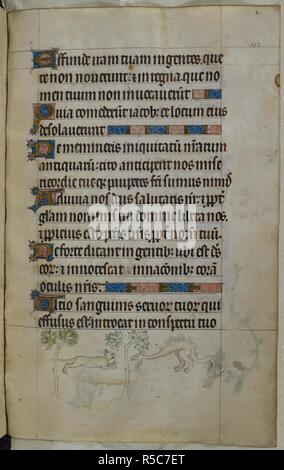 Effunde iram tuam in gentes que
te non noverunt: & in regna que no
men tuum non invocaverunt
Quia comederunt iacob: et locum eius
desolaverunt
Ne memineris iniquitatū nr̄arum
antiquarū: cito anticipent nos mise
ricordie tue q̄ pauperes facti sumus nimis
Adiuva nos deus salutaris nr̄: & ꝓpt̄
gl̄am nominis tui domine libera nos:
& ꝓpicius esto pctīs nr̄is ꝓpt̄ nom̄ tuū.
Ne forte dicant in gentib: ubi est deus
eor: & innotescat in nacionib: corā
oculis nr̄is.
Ultio sanguinis servor tuor qui
effusus est: introeat in conspectu tuo
alamy
Image ID: R5C7ET
www.alamy.com